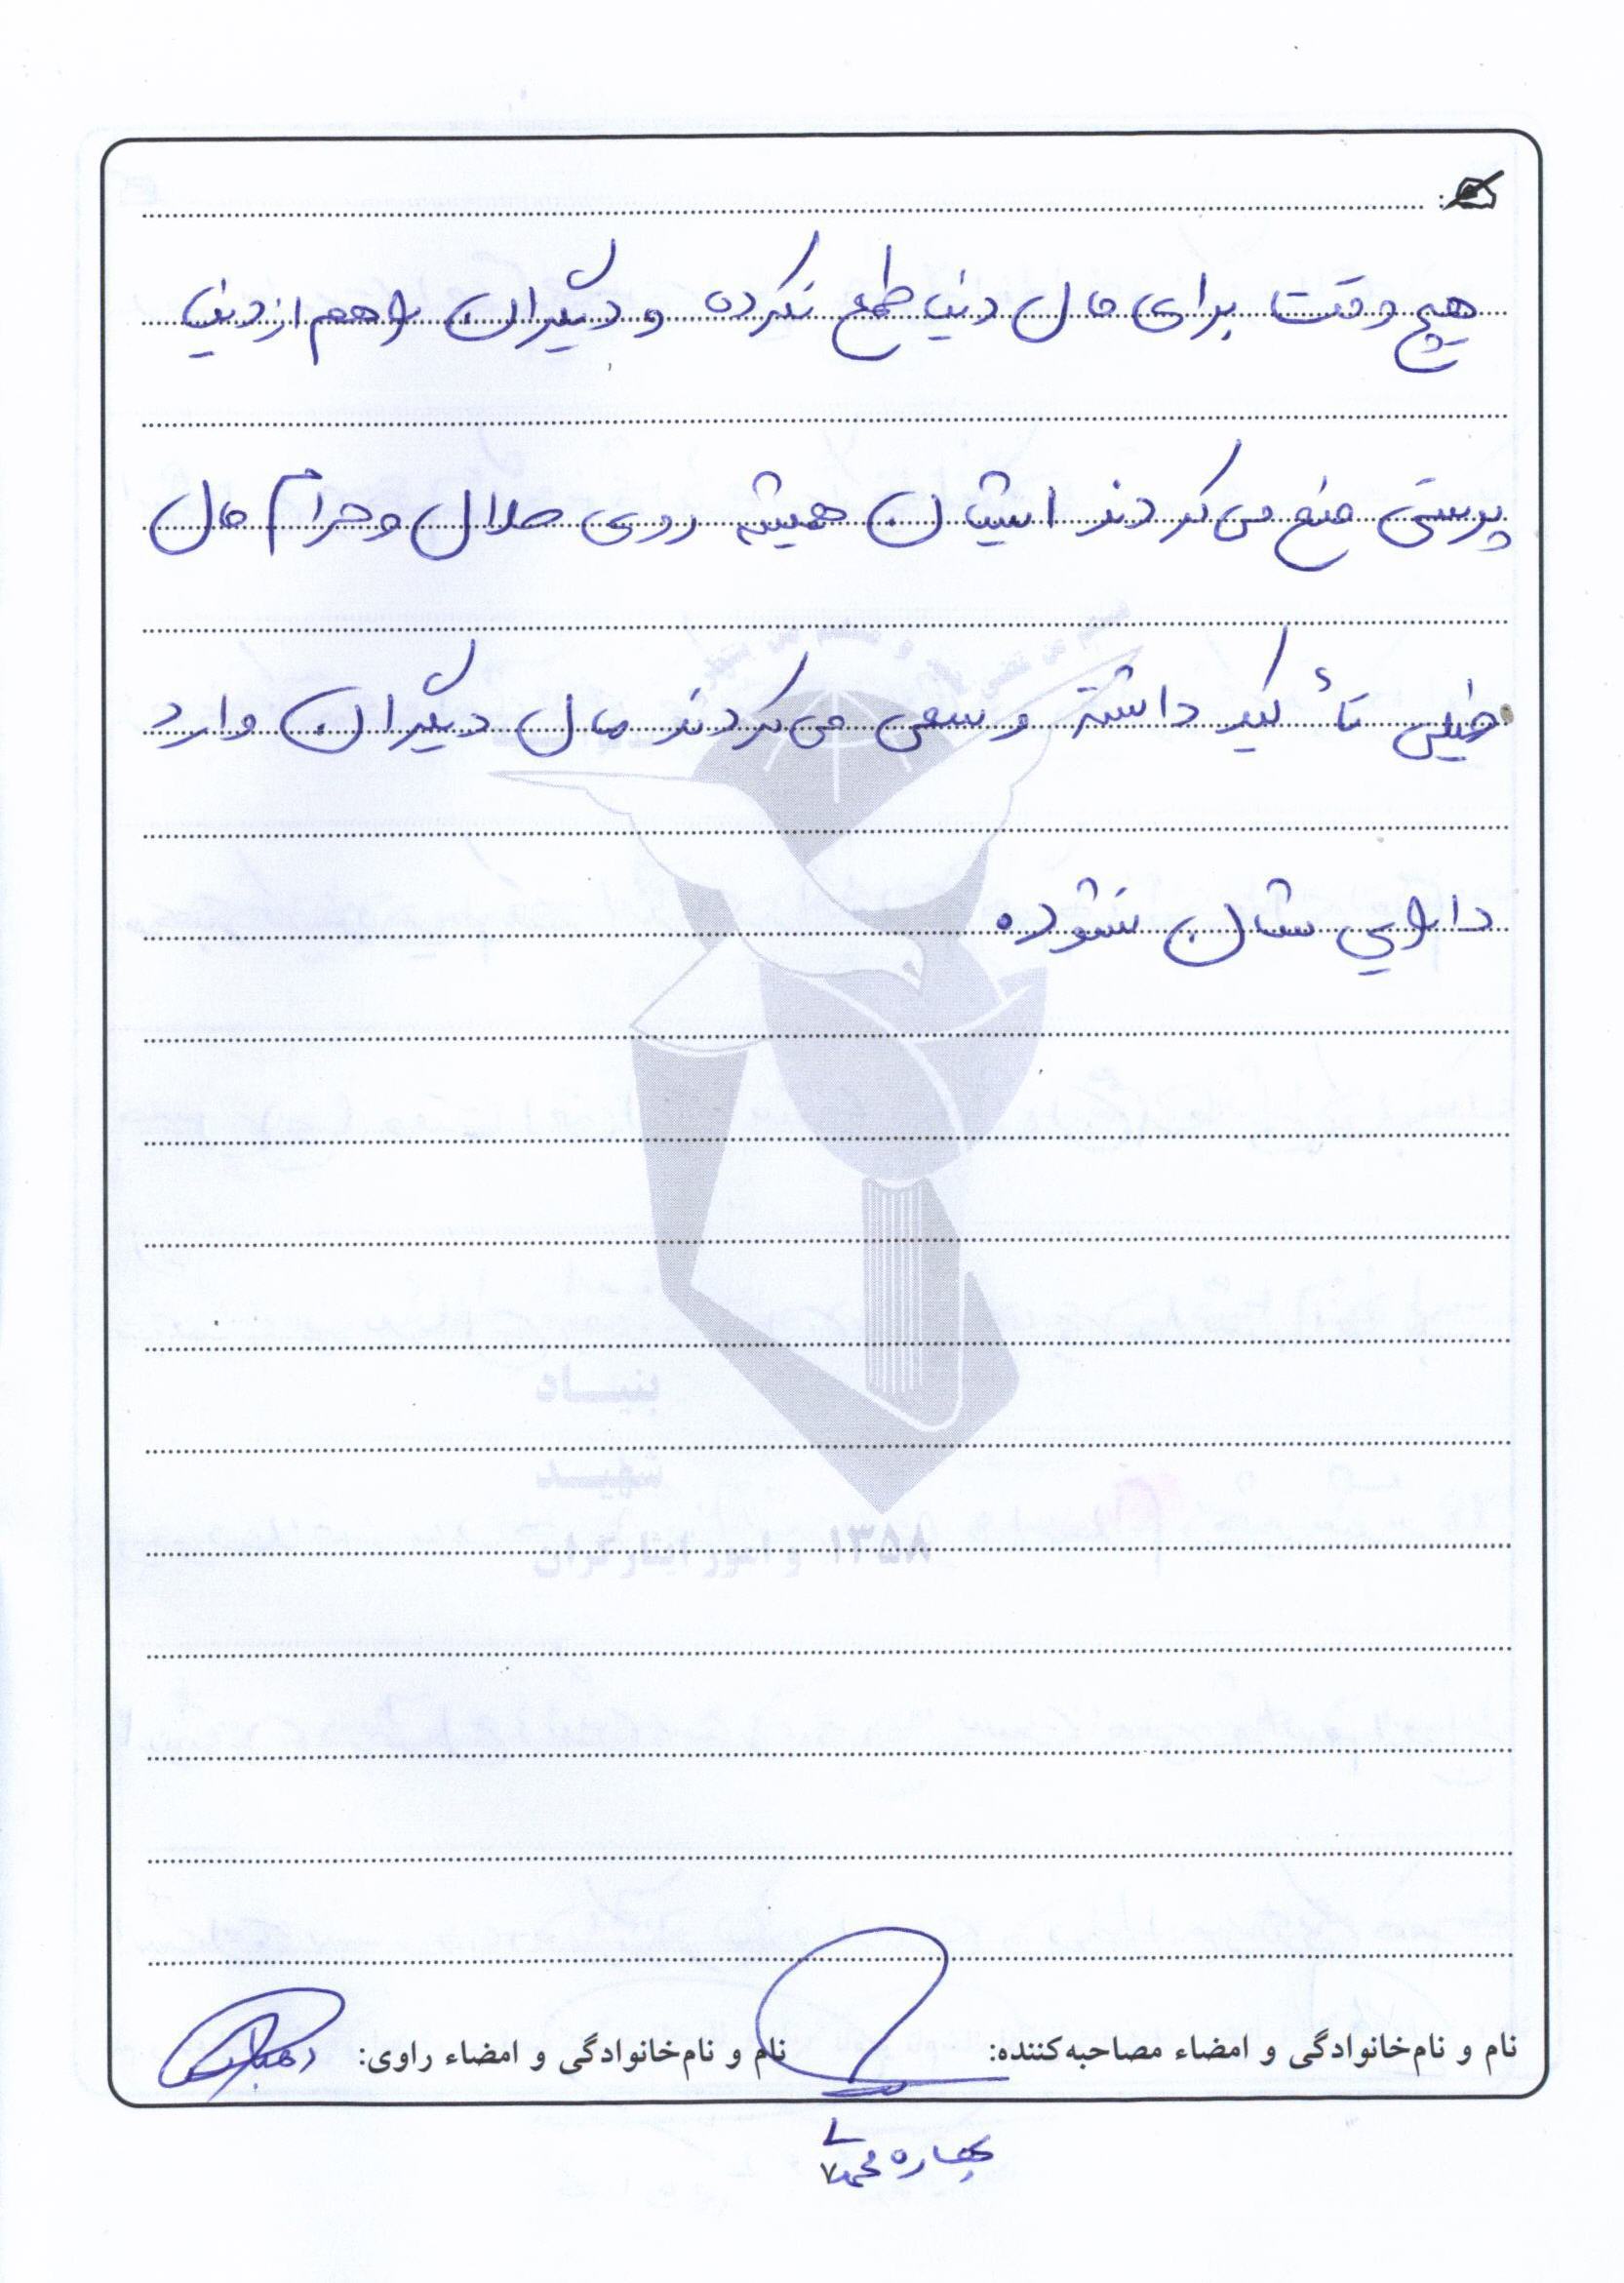 هیچ وقت برای مال دنیا طمع نکرده و دیگران را هم از دنیا
پرستی منع می‌کردند ایشان همیشه روی حلال و حرام مال
خیلی تأکید داشته و سعی می‌کردند مال دیگران وارد
دارایی شان نشود.
بنیــاد
شهیــد
و امور ایثارگران ۱۳۵۸
نام و نام‌خانوادگی و امضاء مصاحبه‌کننده: نام و نام‌خانوادگی و امضاء راوی:
بهاره